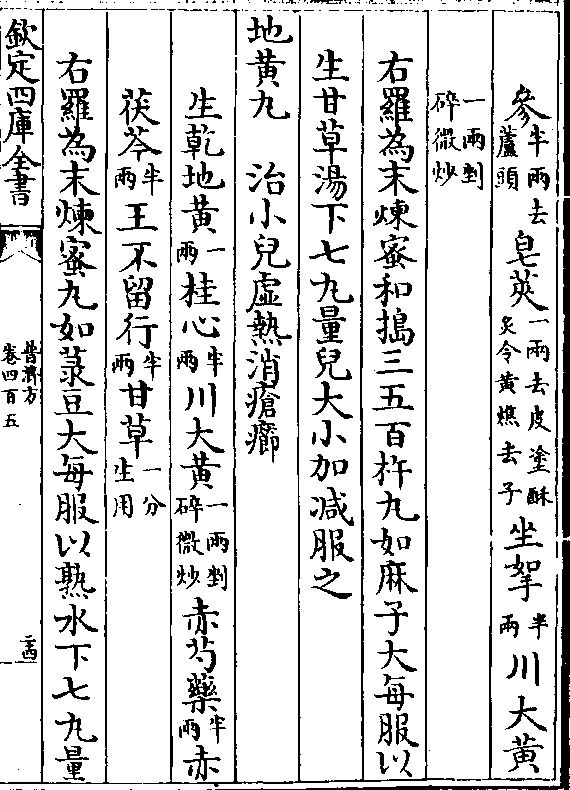 參半兩去蘆頭皂莢一兩去皮塗酥炙令黄燋去子坐拏半兩川大黄
一兩剉碎微炒
右羅為末煉蜜和搗三五百杵丸如麻子大每服以
生甘草湯下七丸量兒大小加減服之
地黄丸　治小兒虛熱消瘡癤
生乾地黄一兩桂心半兩川大黄一兩剉碎微炒赤芍藥半兩赤
茯苓半兩王不留行半兩甘草一分生用
右羅為末煉蜜丸如菉豆大每服以熟水下七丸量
欽定四庫全書
普濟方
卷四百五
二十四